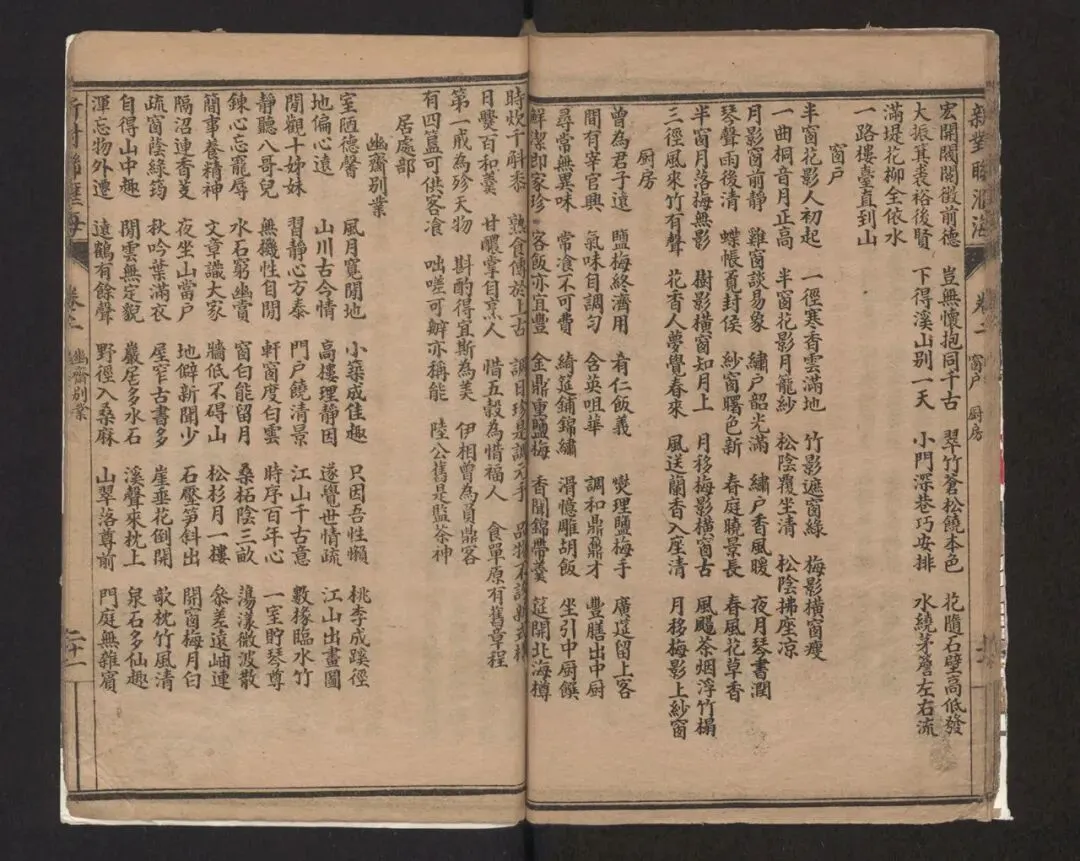 新對聯滙海 卷二 窗户 厨房
宏開閥閱徵前德 豈無懷抱同千古 翠竹蒼松饒本色 花隨石壁高低發
大振箕裘裕後賢 下得溪山别一天 小門深巷巧安排 水繞茅簷左右流
滿堤花柳全依水
一路樓臺直到山
窗户
半窗花影人初起 一徑寒香雲滿地 竹影遮窗綠 梅影橫窗瘦
一曲桐音月正高 半窗花影月籠紗 松陰覆坐清 松陰拂座凉
月影窗前靜 雞窗談易象 繡户韶光滿 繡户香風暖 夜月琴書潤
琴聲雨後清 蝶帳覓封侯 紗窗曙色新 春庭曉景長 春風花草香
半窗月落梅無影 樹影橫窗知月上 月移梅影橫窗古 風颺茶烟浮竹榻
三徑風來竹有聲 花香人夢覺春來 風送蘭香入座清 月移梅影上紗窗
厨房
曾為君子遠 鹽梅終濟用 有仁飯義 爕理鹽梅手 廣筵留上客
間有宰官興 氣味自調匀 含英咀華 調和鼎鼐才 豐膳出中厨
尋常無異味 常飡不可費 綺筵鋪錦繡 滑憶雕胡飯 坐引中厨饌
鮮潔即家珍 客飯亦宜豐 金鼎重鹽梅 香聞錦帶羹 筵開北海樽
時炊千斛黍 熟食傳於上古 調日珍是調元手
日爨百和羹 甘醴掌自烹人 惜五穀為惜福人 食單原有舊章程
第一戒為殄天物 斟酌得宜斯為美 伊相曾為負鼎客
有四簋可供客飡 咄嗟可辦亦稱能 陸公舊是監茶神
居處部
幽齋别業
室陋德馨 風月寬閒地 小築成佳趣 只因吾性懶 桃李成蹊徑
地偏心遠 山川古今情 高樓理靜因 遂覺世情疏 江山出畫圖
閒觀十姊妹 習靜心方泰 門户饒清景 江山千古意 數椽臨水竹
靜聽八哥兒 無機性自閒 軒窗度白雲 時序百年心 一室貯琴尊
鍊心忘寵辱 水石窮幽賞 窗白能留月 桑柘陰三畝 蕩漾微波散
簡事養精神 文章識大家 牆低不碍山 松杉月一樓 叅差遠岫連
隔沼連香芰 夜坐山當户 地僻新聞少 石壓笋斜出 開窗梅月白
疏窗蔭綠筠 秋吟葉滿衣 屋窄古書多 崖垂花倒開 欹枕竹風清
自得山中趣 閒雲無定貌 巖居多水石 溪聲來枕上 泉石多仙趣
渾忘物外遷 遠鶴有餘聲 野徑入桑麻 山翠落尊前 門庭無雜賓
新對聯滙海 卷二 幽齋别業 二十二